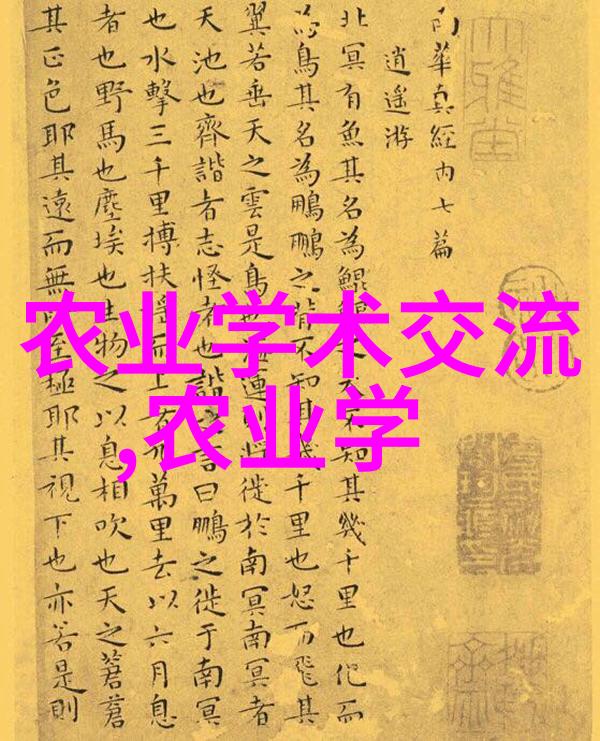 南華真經内七篇
逍遥游
北冥有魚其名為鯤鯤之大不知其幾千里也化而
為鳥其名為鵬鵬之背不知其幾千里也怒而飛其
翼若垂天之雲是鳥也海運則將徙於南冥南冥者
天池也齊諧者志怪者也諧之言曰鵬之徙于南冥
也水擊三千里搏扶摇而上者九萬里去以六月息
者也野馬也塵埃也生物之以息相吹也天之蒼蒼
其正色耶其遠而無所至極耶其視下也亦若是則
农业学术交流
,农业学